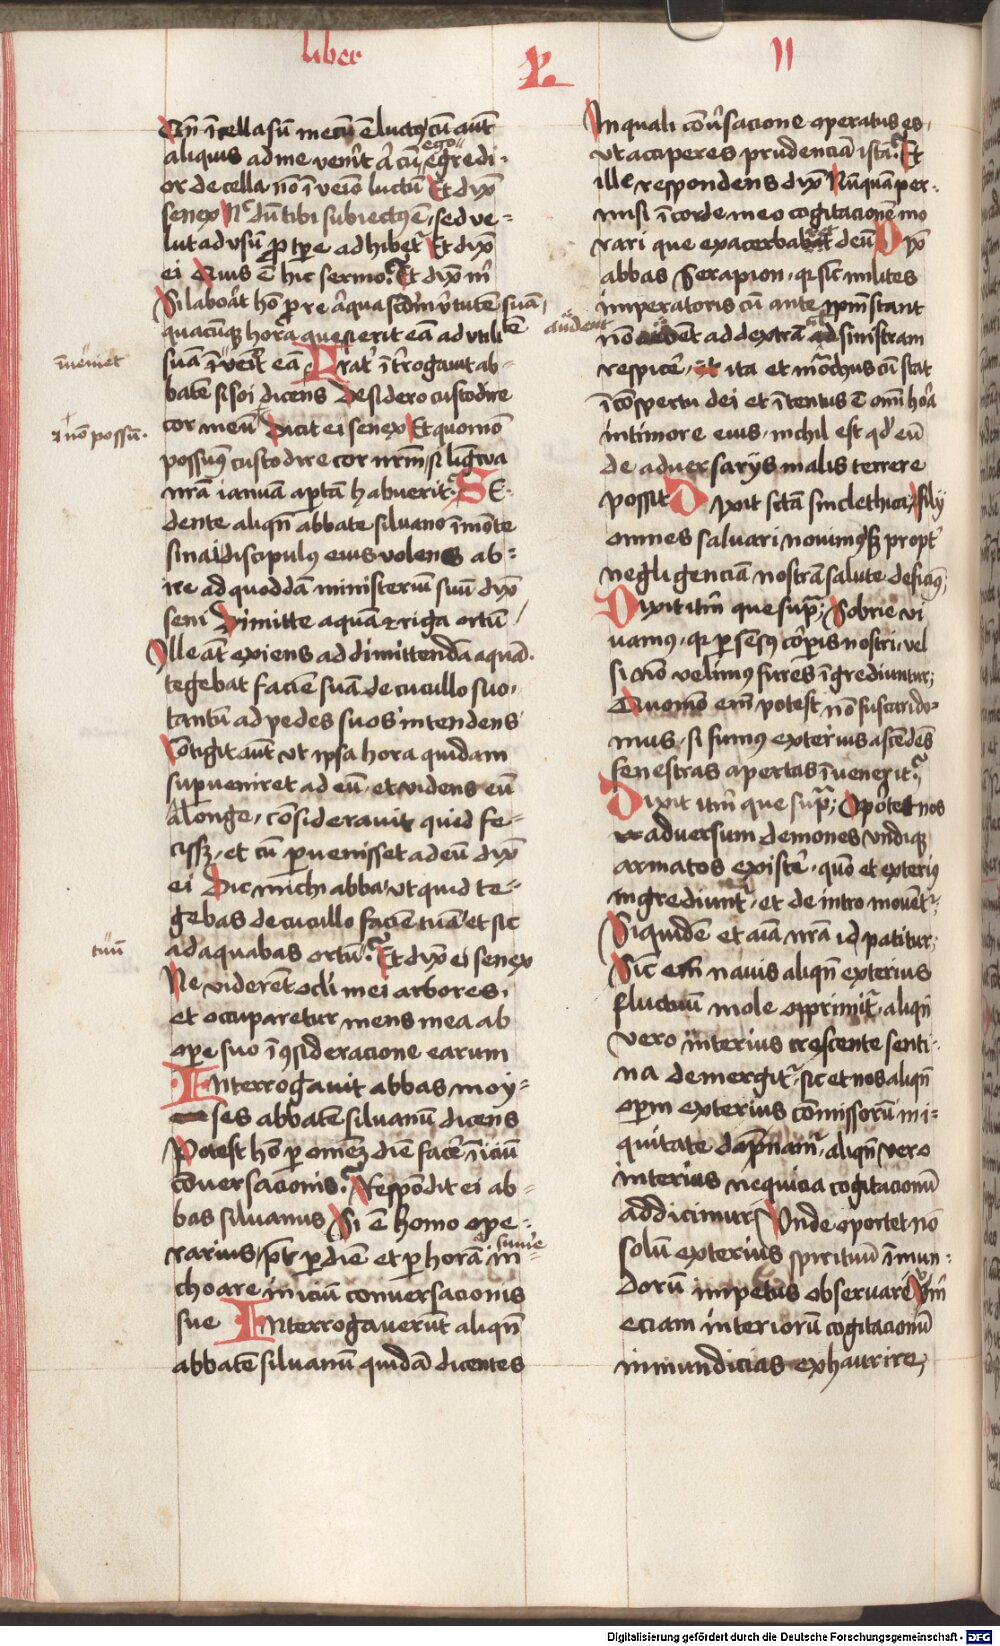 liber
X
II
Qn̄ ī cella sū mecū ē luctꝰ cū aūt
aliquis ad me venīt a͞ cū ego egredi-
or de cella nō īvenio luctū Et dix̄
senex Nō dū tibi subiectꝰ ē, sed ve=
lut ad usū ꝑ tꝑe adhibetͬ Et dix̄
ei Quis ē hic sermo? Et dix̄ m̄
Si laborāt hō pro re aliqua scdm v̄tutē suā,
quacūqꝫ hora quesierit eā ad utilitatē
suā īveīt eā
īveniet
Frater īterrogauit ab-
batē sisoi dicens desidero custodire
cor meū Dicit ei senex Et quomō
et nō possū.
possumꝰ custodire cor nrm̄, si lingwa
nrā ianuā aptā habuerit? SE-
dente aliqn̄ abbate siluano ī mōte
sinai discipulꝰ eius volens ab=
ire ad quoddā ministeriū suū dix̄
seni Dimitte aquā et riga ortū
Ille aūt exiens ad dimittendā aquā.
tegebat faciē suā de cucullo suo,
tantū ad pedes suos intendens
Cōtigit aūt ut ipsa hora quidam
suꝑueniret ad eū, et videns eū
A longe, cōsiderauit quid fe-
cissꝫ, et cū ꝑuenisset ad eū dix̄
ei Dic michi abba, ut quid te=
gebas de cucullo faciē tuā et sic
adaquabas ortū? Et dix̄ ei senex
tuū
Ne viderēt ocli mei arbores,
et occuparetur mens mea ab
oꝑe suo ī ꝯsideracione earum
Interrogauit abbas moy=
ses abbatē siluanū dicens
Potest hō ꝑ omēꝫ diē facͤe īiciū
cōuersacionis? Respondit ei ab=
bas siluanus Si ē homo ope-
rarius, pōt ꝑ diē et ꝑ horā sumͤe in
choare iniciū conuersacionis
sue Interrogauerūt aliqn̄
abbatē siluanū quidā dicentes
In quali cōuͬsacione operatus es,
ut acciperes prudenciā istā? Et
ille respondens dix̄ Nūquam per-
misi ī corde meo cogitacionē mo
rari que exacerbabat deū Dix̄
abbas Serapion, qꝛ sic milites
imperatoris cū ante ipm̄ stant
audent
nō audent ad dextrā aut ad sinistram
respicͤe, ita et mōchus cū stat
ī cōspectu dei et ītentus ē omi horͣa
in timore eius, nichil est qd̕ eū
de aduersarijs malis terrere
possit Dixit scā sincletica, filij
omnes saluari nouimꝰ, sꝫ proptͬ
negligenciā nostrā salute deficimꝰ,
Dixit itm̄ que supͣ; Sobrie vi
uamus, qꝛ ꝑ sēsꝰ corꝑis nostri, vel
si nō velimꝰ fures īgrediuntur;
Quomō em̄ potest nō fuscari do-
mus, si fumꝰ exterius ascēdēs
fenestras apertas īuenerit?
Dixit itm̄ que supͣ; Oportet nos
aduersum demones undiqꝫ
armatos existͤe, quō et exteriꝰ
ingrediuntͬ, et de intro mouētͬ,
Siquidē et aīa nrā id patitur;
Sic em̄ nauis aliqn̄ exterius
fluctuū mole opprimitͬ, aliqn̄
vero interius crescente senti-
na demergitͬ, sic et nos aliqn̄
oꝑm exterius cōmissorū ini-
quitate dāpnamͬ, aliqn̄ vero
interius nequicia cogitacionū
addicimur Unde oportet nō
solū exterius spirituū īmun-
dorū impetus obseruare Vm̄
eciam interiorū cogitacionū
inmundicias exhaurire;
Digitalisierung gefördert durch die Deutsche Forschungsgemeinschaft - DFG